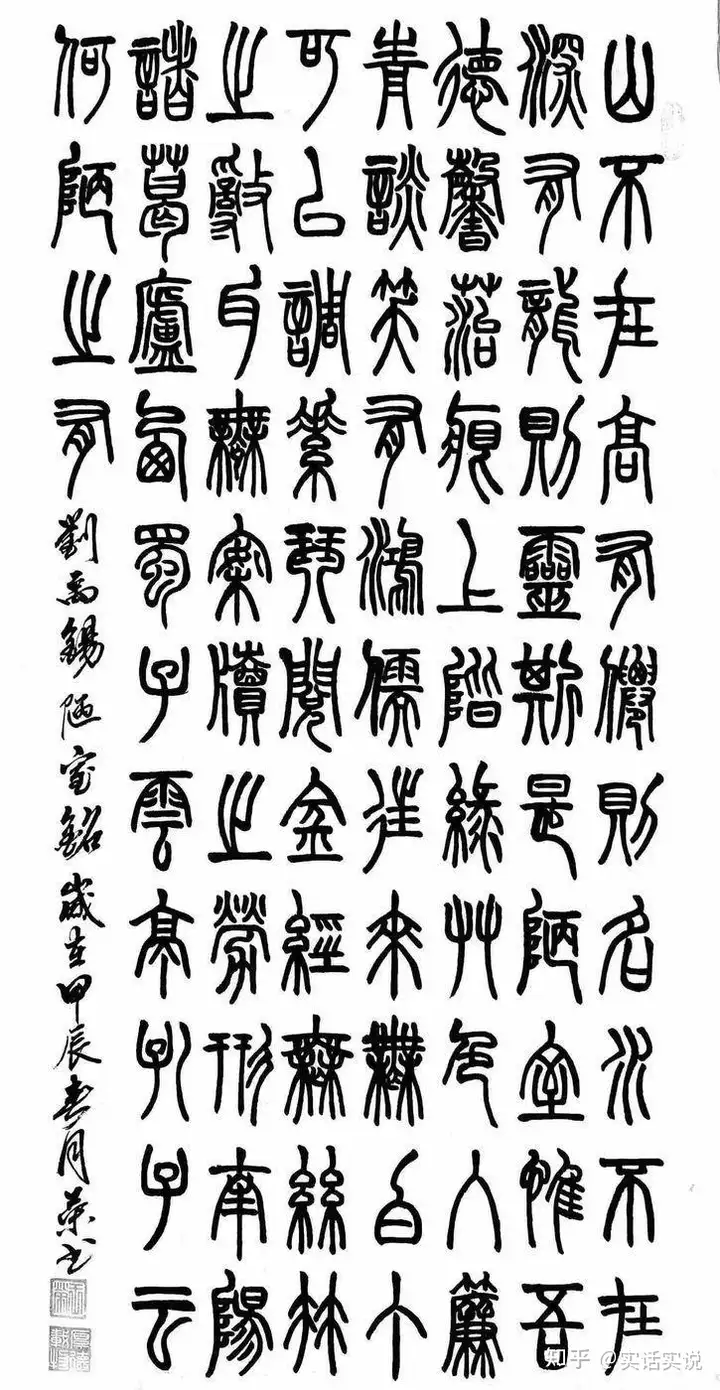 山不在高有僊則名水不在
深有龍則靈斯是陋室惟吾
德馨菭痕上階綠艸色入簾
青談笑有鴻儒往來無白丁
可以調素琴閱金經無絲竹
之亂耳無案牘之勞形南陽
諸葛廬西蜀子雲亭孔子云
何陋之有
劉禹錫陋室銘歲在甲辰春月榮书
知乎 @实话实说